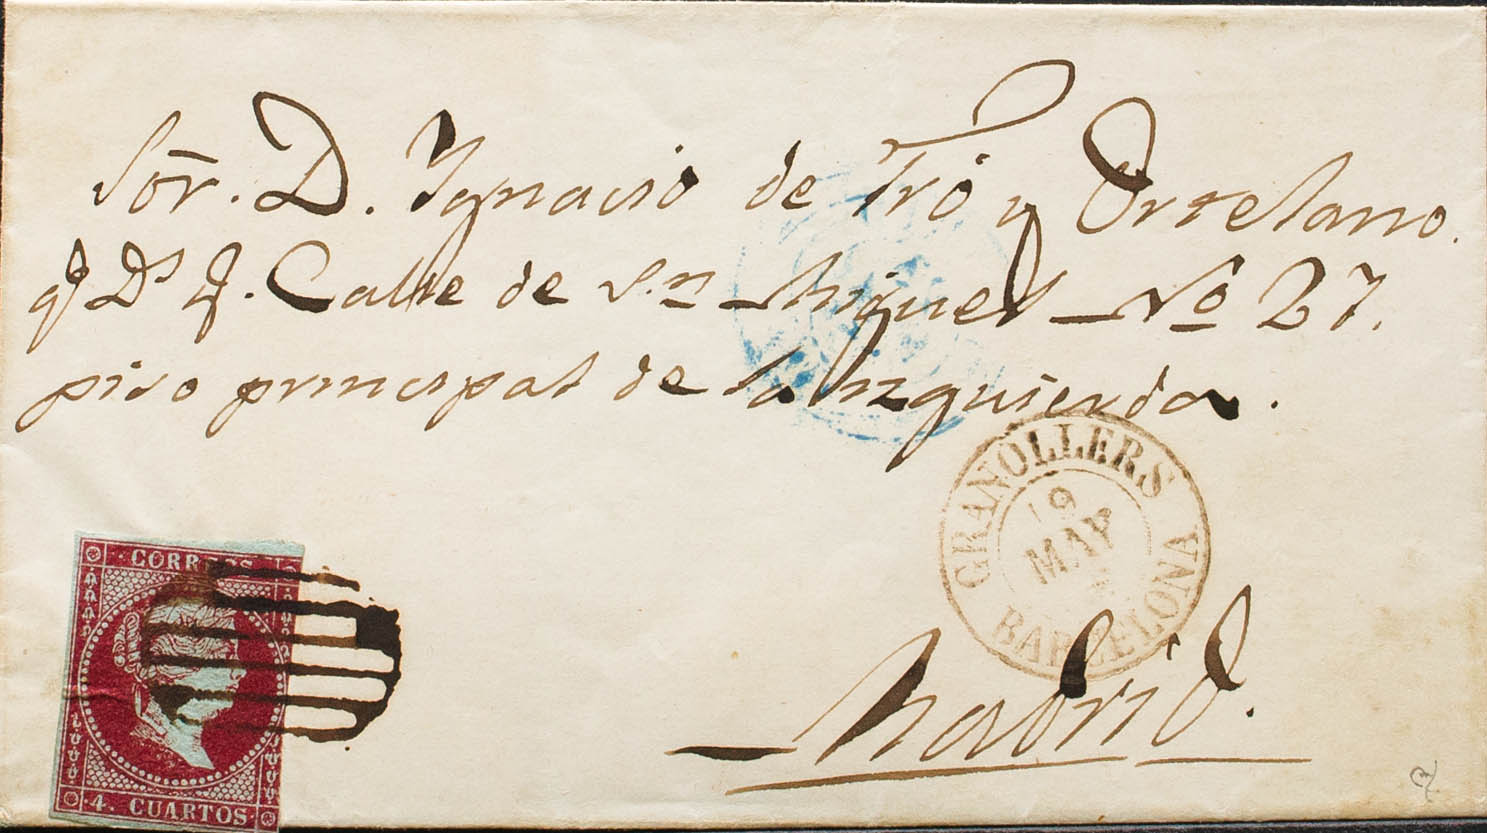 Sōr. D. Ygnacio de Fró y Ortelano.
q Ds g. Calle de Sn Miguel Nº 27.
piso principal de la Yzquierda.
GRANOLLERS
19
MAY
BARCELONA
Madrid.
CORREOS
4. CUARTOS.